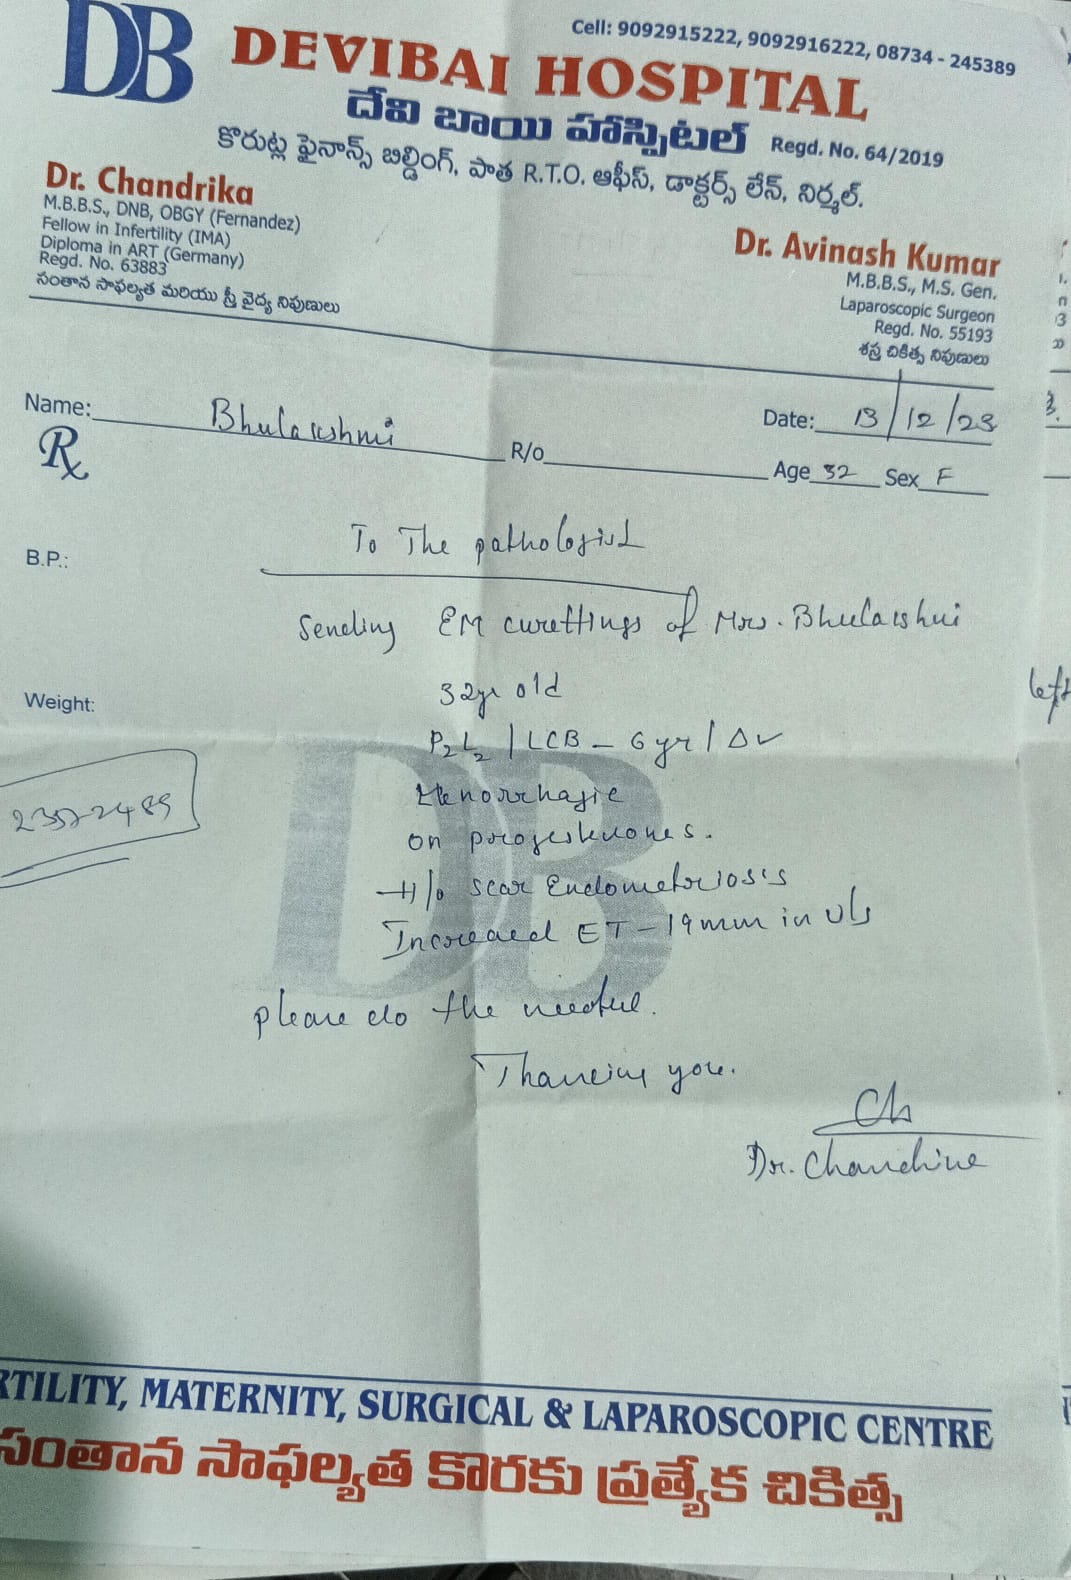 DB
Cell: 9092915222, 9092916222, 08734 - 245389
DEVIBAI HOSPITAL
దేవి బాయి హాస్పిటల్ Regd. No. 64/2019
కొరుట్ల ఫైనాన్స్ బిల్డింగ్, పాత R.T.O. ఆఫీస్, డాక్టర్స్ లేన్, నిర్మల్.
Dr. Chandrika
M.B.B.S., DNB, OBGY (Fernandez)
Fellow in Infertility (IMA)
Diploma in ART (Germany)
Regd. No. 63883
సంతాన సాఫల్యత మరియు స్త్రీ వైద్య నిపుణులు
Dr. Avinash Kumar
M.B.B.S., M.S. Gen.
Laparoscopic Surgeon
Regd. No. 55193
శస్త్ర చికిత్స నిపుణులు
Name: Bhulakshmi R/o Date: 13/12/23
Rx Age 32 Sex F
To The pathologist
B.P.:
Sending EM curettings of Mrs. Bhulakshmi
32yr old
Weight:
P2L2 / LCB - 6yr /
Menorrhagia
on progesterones.
H/o scar Endometriosis
Increased ET - 19mm in U/s
please do the needful.
Thanking you.
Dr. Chandrika
DB
left
RTILITY, MATERNITY, SURGICAL & LAPAROSCOPIC CENTRE
సంతాన సాఫల్యత కొరకు ప్రత్యేక చికిత్స